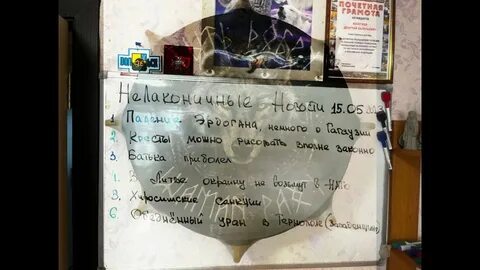 ПОЧЕТНАЯ
ГРАМОТА
Нелаконичные Новости 15.05.
1. Падение Эрдогана, немного о Гагаузии
2. Кресты можно рисовать вполне законно
3. Батька приболел
1. В Литве окраину не возьмут в НАТО
3. Хиросимские санкции
6. Обеднённый уран в Тернополе